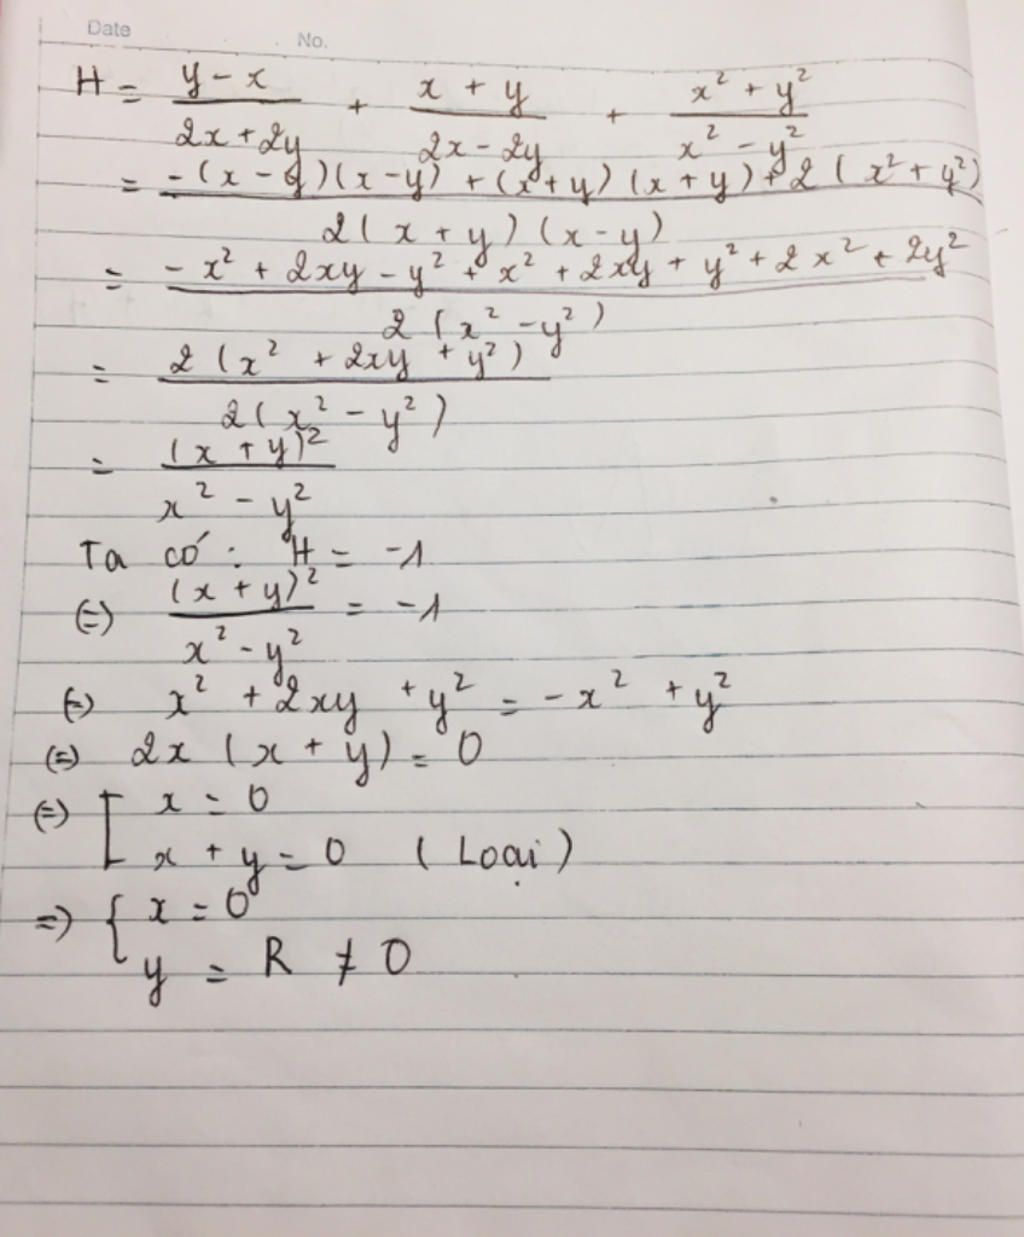 Date No.
H = \frac{y - x}{2x + 2y} + \frac{x + y}{2x - 2y} + \frac{x² + y²}{x² - y²}
= \frac{-(x - y)(x - y) + (x + y)(x + y) + 2(x² + y²)}{2(x + y)(x - y)}
= \frac{-x² + 2xy - y² + x² + 2xy + y² + 2x² + 2y²}{2(x² - y²)}
= \frac{2(x² + 2xy + y²)}{2(x² - y²)}
= \frac{(x + y)²}{x² - y²}
Ta có: H = -1
(=) \frac{(x + y)²}{x² - y²} = -1
(=) x² + 2xy + y² = -x² + y²
(=) 2x(x + y) = 0
(=) [ x = 0
x + y = 0 (Loại)
=) { x = 0
y = R ≠ 0